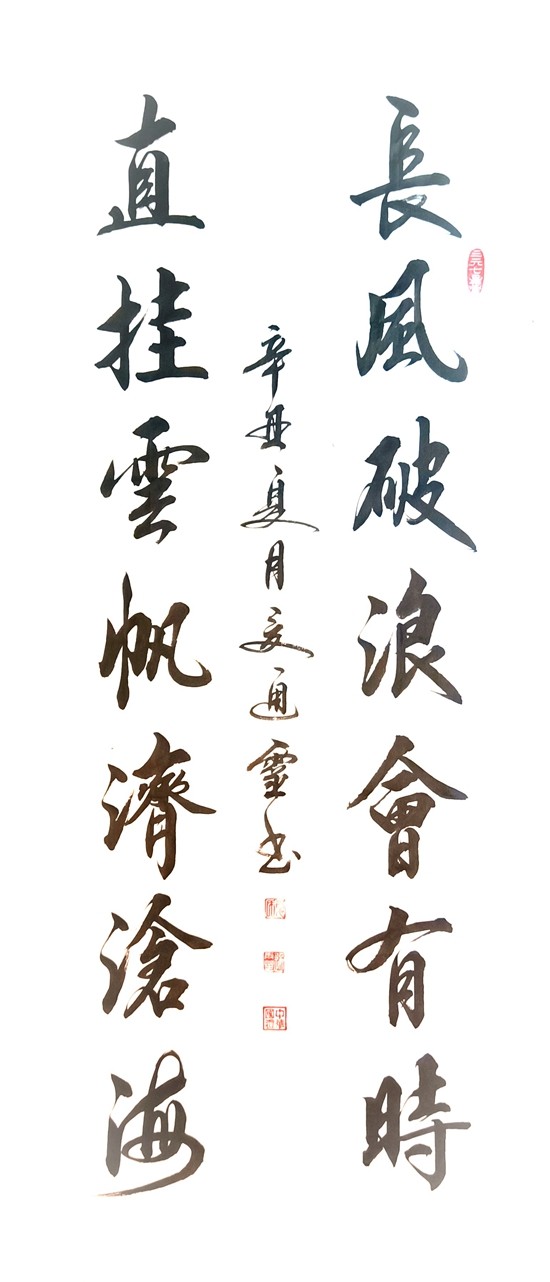 長風破浪會有時
直挂雲帆濟滄海
辛丑夏月文通靈书